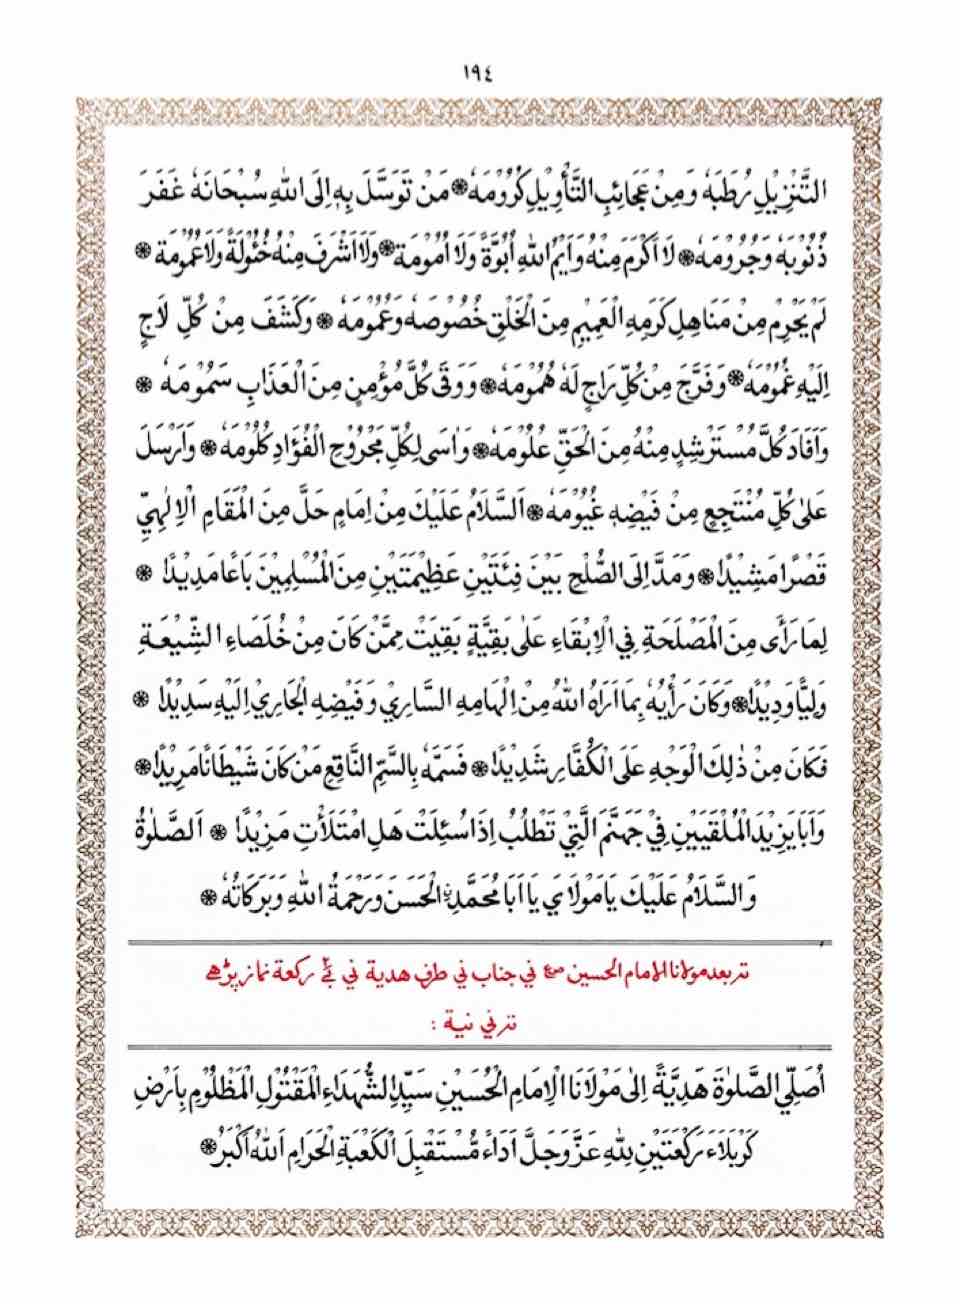 ١٩٤
التَّنْزِيْلِ رُطَبَهٗ وَمِنْ عَجَائِبِ التَّأْوِيْلِ كُرُوْمَهٗ ۞ مَنْ تَوَسَّلَ بِهٖ اِلَى اللهِ سُبْحَانَهٗ غَفَرَ
ذُنُوْبَهٗ وَجُرُوْمَهٗ ۞ لَا اَكْرَمَ مِنْهُ وَاَيْمُ اللهِ اُبُوَّةً وَلَا اُمُوْمَة ۞ وَلَا اَشْرَفَ مِنْهُ خُئُوْلَةً وَلَا عُمُوْمَة ۞
لَمْ يَحْرِمْ مِنْ مَنَاهِلِ كَرَمِهِ الْعَمِيْمِ مِنَ الْخَلْقِ خُصُوْصَهٗ وَعُمُوْمَهٗ ۞ وَكَشَفَ مِنْ كُلِّ لَاجٍ
اِلَيْهِ غُمُوْمَهٗ ۞ وَفَرَّجَ مِنْ كُلِّ رَاجٍ لَهٗ هُمُوْمَهٗ ۞ وَوَقٰى كُلَّ مُؤْمِنٍ مِنَ الْعَذَابِ سَمُوْمَهٗ ۞
وَاَفَادَ كُلَّ مُسْتَرْشِدٍ مِنْهُ مِنَ الْحَقِّ عُلُوْمَهٗ ۞ وَاٰسٰى لِكُلِّ مَجْرُوْحِ الْفُؤَادِ كُلُوْمَهٗ ۞ وَاَرْسَلَ
عَلٰى كُلِّ مُنْتَجِعٍ مِنْ فَيْضِهٖ غُيُوْمَهٗ ۞ اَلسَّلَامُ عَلَيْكَ مِنْ اِمَامٍ حَلَّ مِنَ الْمَقَامِ الْاِلٰهِيِّ
قَصْرًا مَشِيْدًا ۞ وَمَدَّ اِلَى الصُّلْحِ بَيْنَ فِئَتَيْنِ عَظِيْمَتَيْنِ مِنَ الْمُسْلِمِيْنَ بَاعًا مَدِيْدًا ۞
لِمَا رَأٰى مِنَ الْمَصْلَحَةِ فِي الْاِبْقَاءِ عَلٰى بَقِيَّةٍ بَقِيَتْ مِمَّنْ كَانَ مِنْ خُلَصَاءِ الشِّيْعَةِ
وَلِيًّا وَدِيْدًا ۞ وَكَانَ رَأْيُهٗ بِمَا اَرَاهُ اللهُ مِنْ اِلْهَامِهِ السَّارِيْ وَفَيْضِهِ الْجَارِيْ اِلَيْهِ سَدِيْدًا ۞
فَكَانَ مِنْ ذٰلِكَ الْوَجْهِ عَلَى الْكُفَّارِ شَدِيْدًا ۞ فَسَمَّهٗ بِالسَّمِّ النَّاقِعِ مَنْ كَانَ شَيْطَانًا مَرِيْدًا ۞
وَاَبَا يَزِيْدَ الْمُلْقَيَيْنِ فِيْ جَهَنَّمَ الَّتِيْ تَطْلُبُ اِذَا سُئِلَتْ هَلِ امْتَلَأْتِ مَزِيْدًا ۞ اَلصَّلٰوةُ
وَالسَّلَامُ عَلَيْكَ يَا مَوْلَايَ يَا اَبَا مُحَمَّدِنِ الْحَسَنَ وَرَحْمَةُ اللهِ وَبَرَكَاتُهٗ ۞
تربعد مولانا الامام الحسين صع في جناب ني طرف هدية ني بے ركعة نماز پڑهے
ترني نية :
اُصَلِّي الصَّلٰوةَ هَدِيَّةً اِلٰى مَوْلَانَا الْاِمَامِ الْحُسَيْنِ سَيِّدِ الشُّهَدَاءِ الْمَقْتُوْلِ الْمَظْلُوْمِ بِاَرْضِ
كَرْبَلَاءَ رَكْعَتَيْنِ لِلّٰهِ عَزَّ وَجَلَّ اَدَاءً مُسْتَقْبِلَ الْكَعْبَةِ الْحَرَامِ اَللهُ اَكْبَرُ ۞